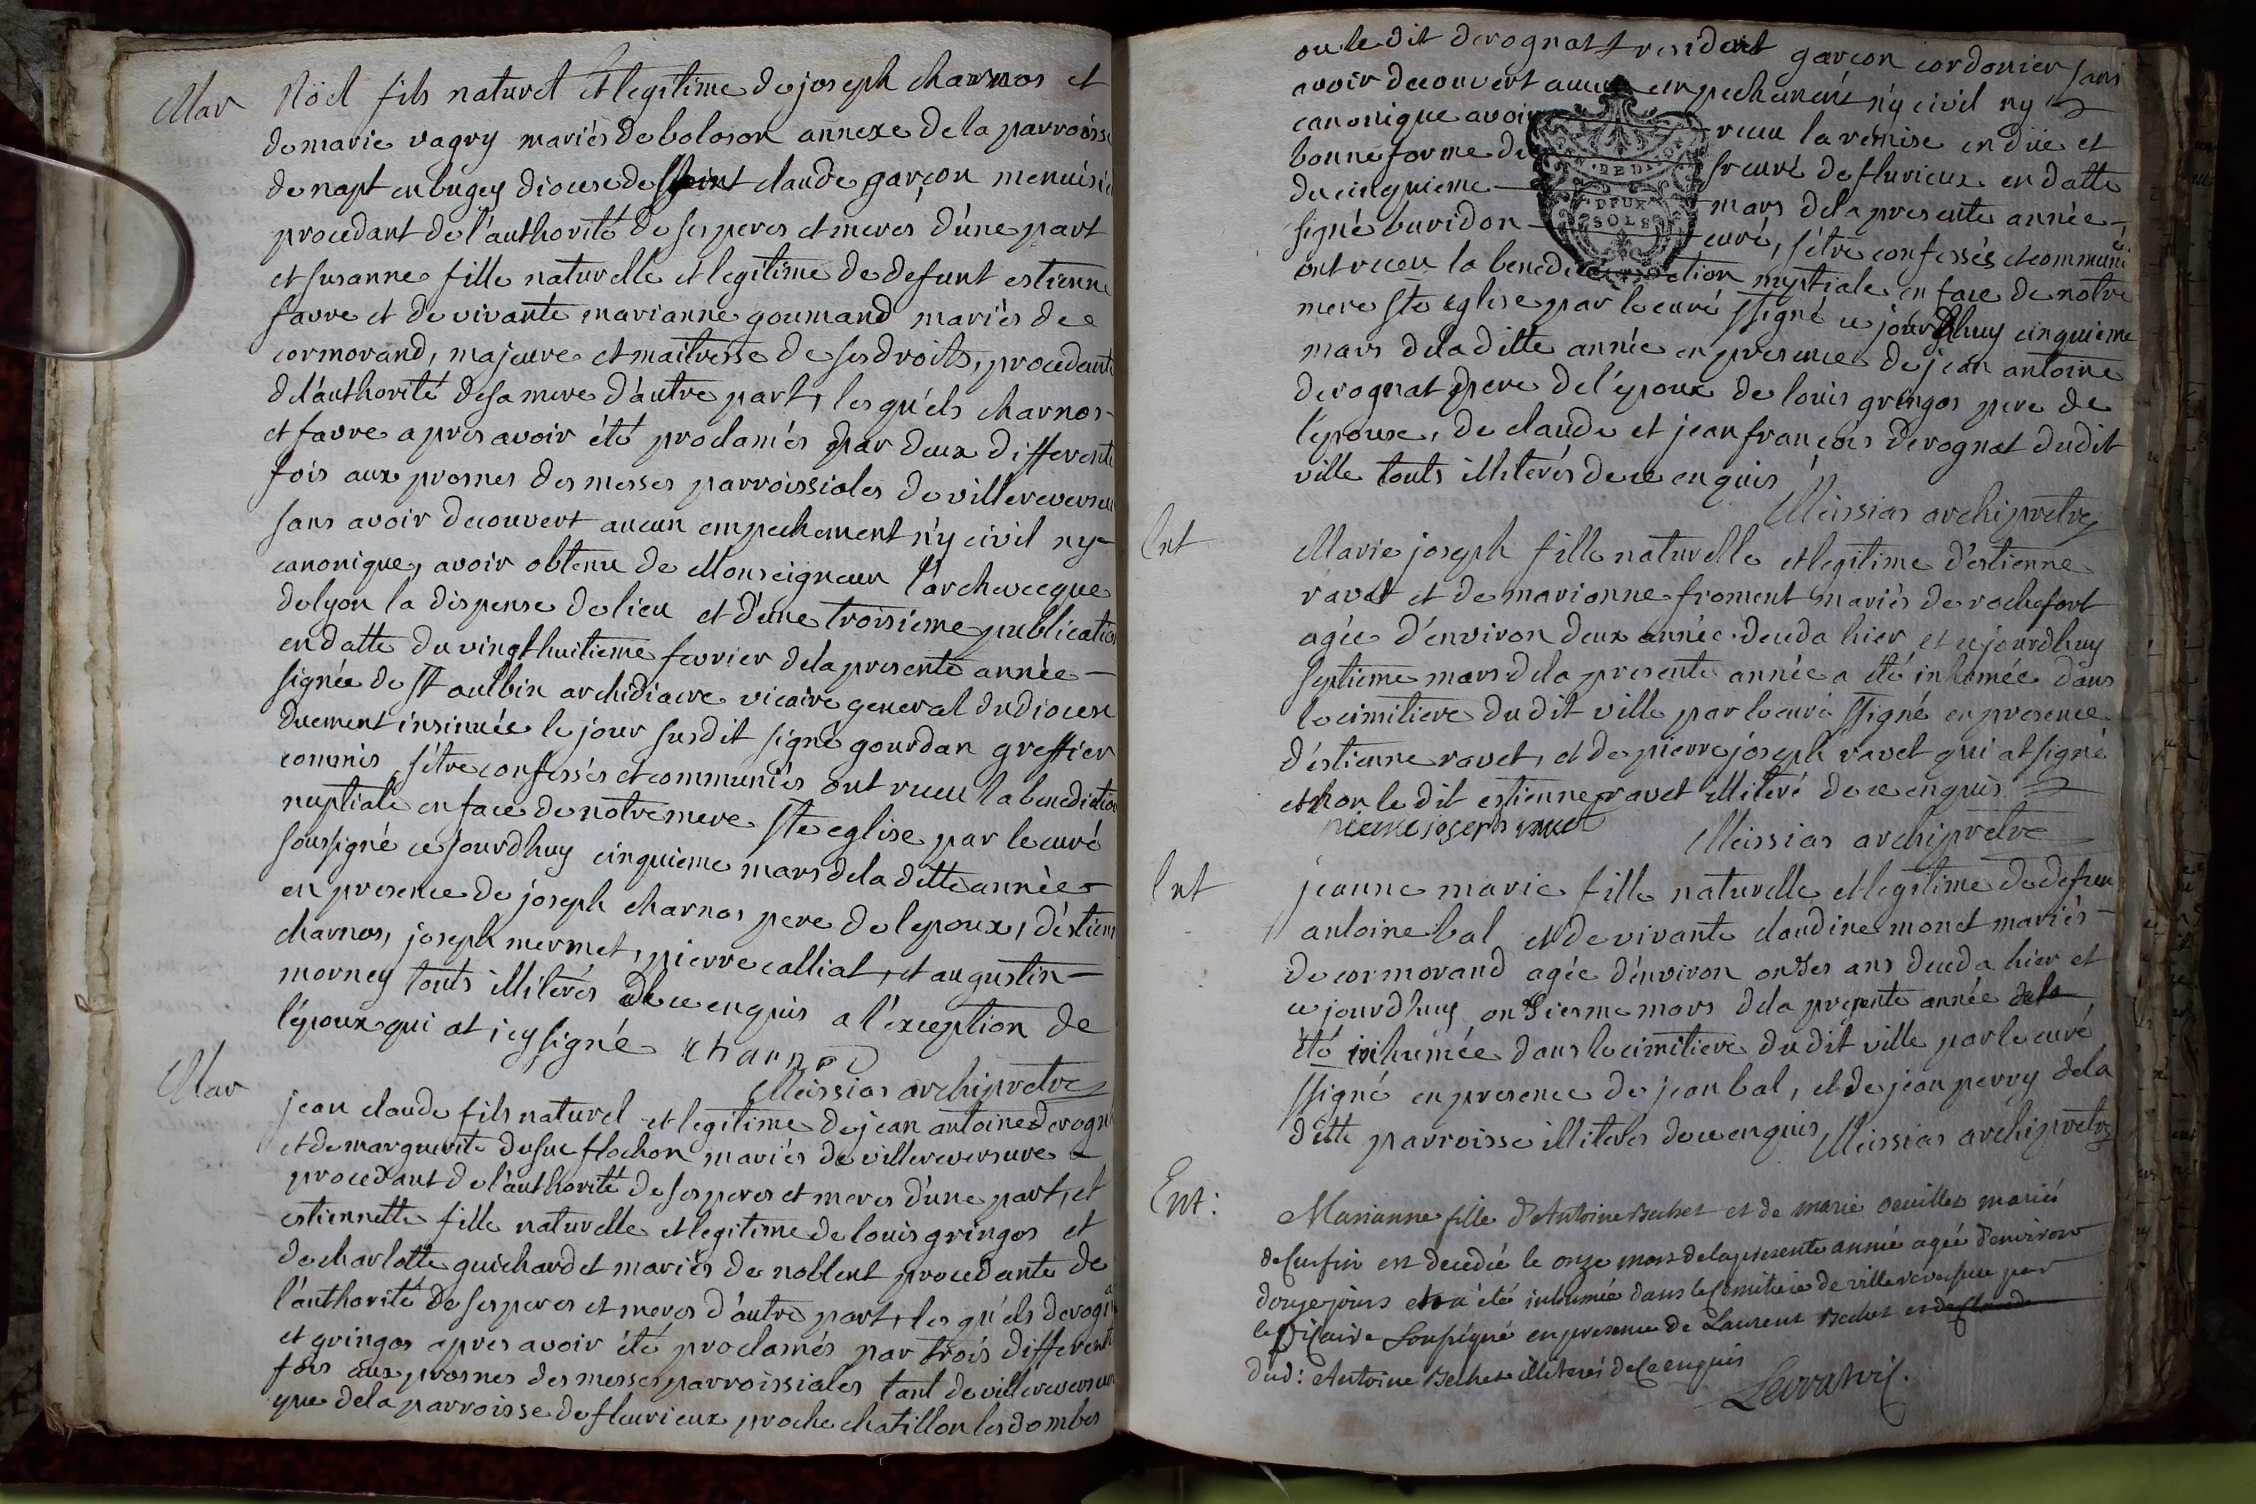 Mar
Nöel fils naturel et legitime de joseph charnos et
de marie vagry mariés de boloson annexe de la parroisse
de napt en bugey diocese de saint claude garçon menuisie
procedant de l'authorité de ses peres et meres d'une part
et susanne fille naturelle et legitime de defunt estienne
favre et de vivante marianne goumand mariés de
cormorand, majeure et maitresse de ses droits, procedante
de l'authorité de sa mere d'autre part, les qu'els charnos
et favre apres avoir été proclamés par deux differente
fois aux prosnes des messes parroissiales de villereversure
sans avoir decouvert aucun empechement n'y civil ny
canonique, avoir obtenu de Monseigneur l'archevecque
de lyon la dispense de lieu et d'une troisieme publication
en datte du vingt huitieme fevrier de la presente année
signée de st aulbin archidiacre vicaire general du diocese
duement insinuée le jour susdit signé gourdan greffier
commis, s'étre confessés et communiés ont receu la benediction
nuptiale en face de notre mere ste eglise par le curé
soussigné ce jourdhuy cinquieme mars de la ditte année
en presence de joseph charnos pere de lepoux, d'éstienne
charnos, joseph mermet, pierre calliat, et augustin
morney touts illiterés de ce enquis a l'exception de
l'époux qui at icy signé charnos
Meissias archipretre
Mar
jean claude fils naturel et legitime de jean antoine derognat
et de marguerite dufue flochon mariés de villereversure
procedant de l'authorité de ses peres et meres d'une part, et
estiennette fille naturelle et legitime de louis gringos et
de charlotte guichardet mariés de noblent procedante de
l'authorité de ses peres et meres d'autre part, les qu'els derogna
et gringos apres avoir été proclamés par trois differente
fois aux prosnes des messes parroissiales tant de villereversure
que de la parroisse de fleurieux proche chatillon les dombes
ou le dit derognat resident garçon cordonier sans
avoir decouvert aucun empechement n'y civil ny
canonique avoir receu la remise en düe et
bonne forme de sr curé de flurieux en datte
du cinquieme mars de la presente année
signé buridon curé, s'étre confessés et communié
ont receu la benediction nuptiale en face de notre
mere ste eglise par le curé ssigné ce jourdhuy cinquieme
mars de la ditte année en presence de jean antoine
derognat pere de l'époux de louis gringos pere de
l'epouse, de claude et jean françois derognat dudit
ville touts illiterés de ce enquis
Meissias archipretre
Ent
Marie joseph fille naturelle et legitime d'estienne
ravet et de marionne froment mariés de rochefort
agée d'environ deux année deceda hier et ce jourdhuy
septieme mars de la presente année a été inhumée dans
le cimitiere du dit ville par le curé ssigné en presence
d'éstienne ravet, et de pierre joseph ravet qui at signé
et non le dit estienne ravet illiteré de ce enquis
pierre joseph ravet
Meissias archipretre
Ent
jeanne marie fille naturelle et legitime de defeu
antoine bal et de vivante claudine monet mariés
de cormorand agée d'environ onzes ans deceda hier et
ce jourdhuy onzieme mars de la presente année
été inhumée dans le cimitiere du dit ville par le curé
ssigné en presence de jean bal, et de jean perry de la
ditte parroisse illiterés de ce enquis Meissias archipretre
Ent:
Marianne fille d'Antoine Bechet et de marie mariés
de Cuffin est decedée le onze mars de la presente année agée d'environ
douze jours et a été inhumée dans le Cemitiere de villereversure par
le Vicaire Soussigné en presence de Laurent Bechet
dud: Antoine Bechet illiterés de Ce enquis